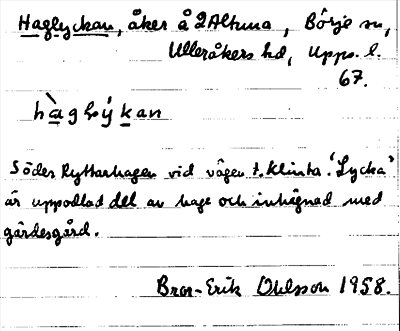 Haglyckan, åker å 2 Altuna, Börje sn,
Ulleråkers hd, Upps. l.
67.
Söder Ryttarhagen vid vägen t. Klinta. "Lycka"
är uppodlad del av hage och inhägnad med
gärdesgård.
Bror-Erik Ohlsson 1958.